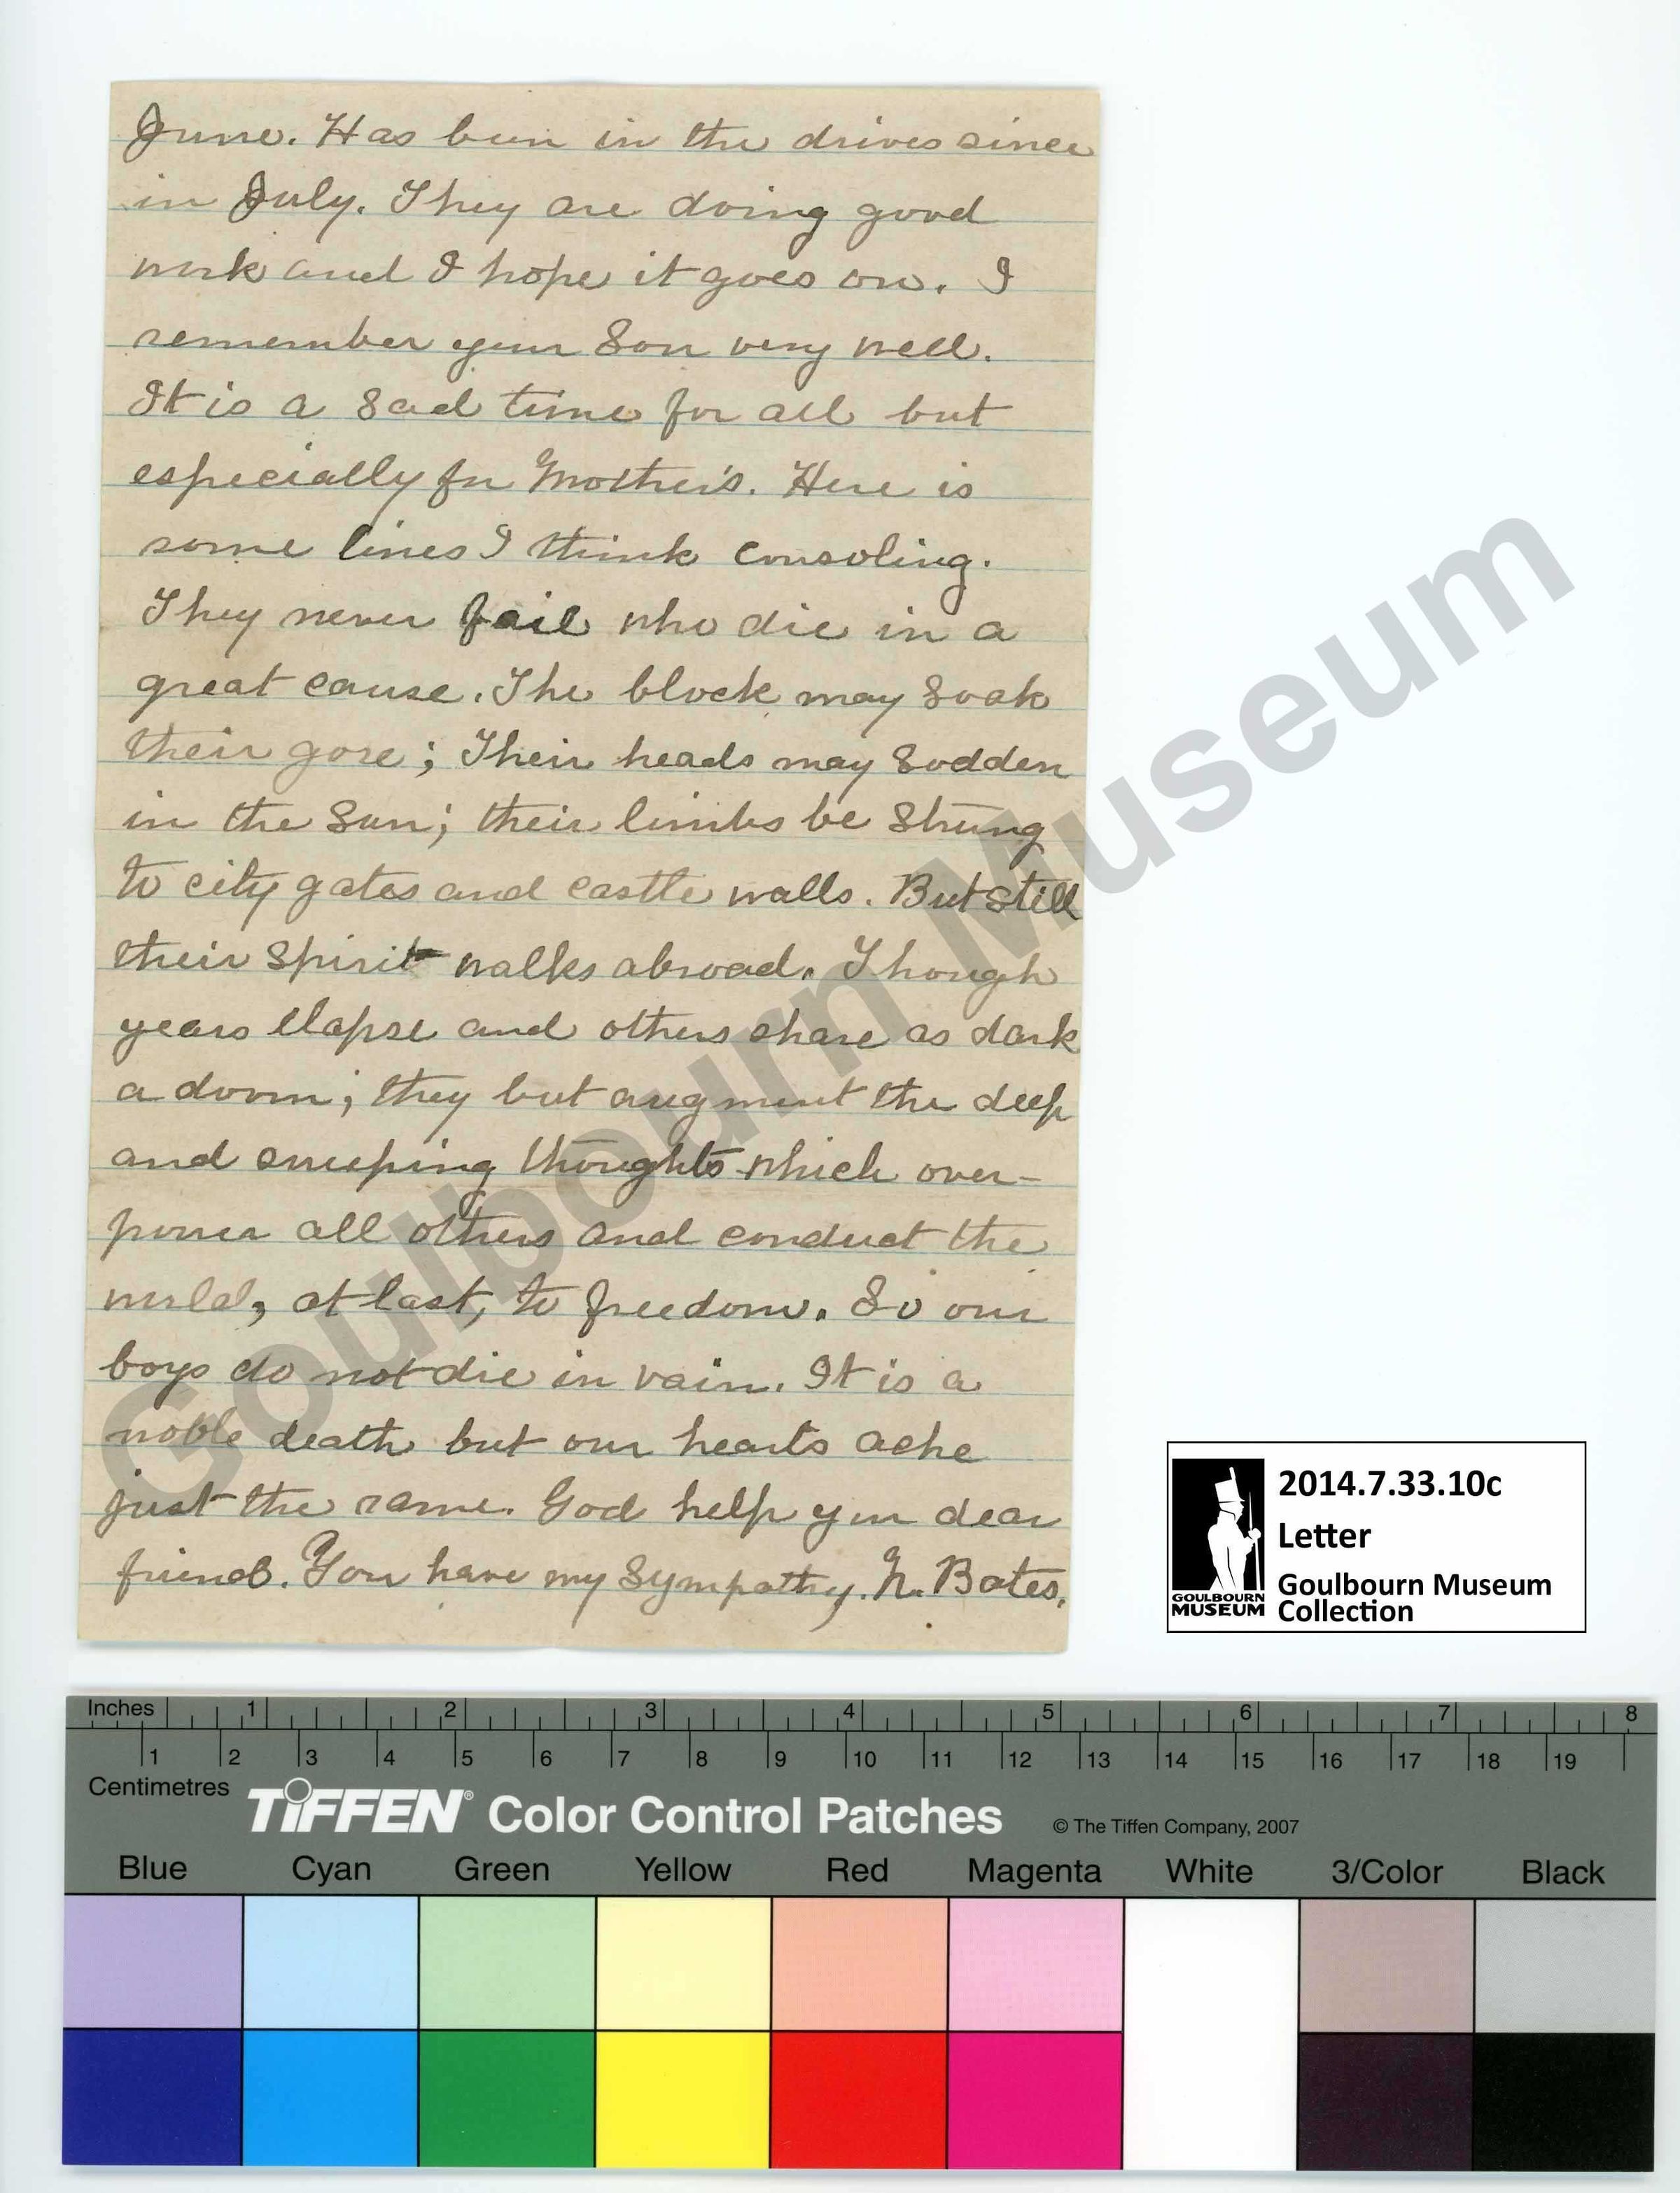 June. Has been in the drives since
in July. They are doing good
work and I hope it goes on. I
remember your Son very well.
It is a sad time for all but
especially for Mother's. Here is
some lines I think consoling.
They never fail who die in a
great cause. The block may soak
their gore; Their heads may sodden
in the sun; their limbs be strung
to city gates and castle walls. But still
their spirit walks abroad. Though
years elapse and others share as dark
a doom; they but augment the deep
and sweeping thoughts which over-
power all others and conduct the
world, at last, to freedom. So our
boys do not die in vain. It is a
noble death but our hearts ache
just the same. God help you dear
friend. You have my sympathy. N. Bates.
Goulbourn Museum
2014.7.33.10c
Letter
Goulbourn Museum
Collection
GOULBOURN
MUSEUM
Inches 1 2 3 4 5 6 7 8
1 2 3 4 5 6 7 8 9 10 11 12 13 14 15 16 17 18 19
Centimetres
TIFFEN® Color Control Patches © The Tiffen Company, 2007
Blue Cyan Green Yellow Red Magenta White 3/Color Black